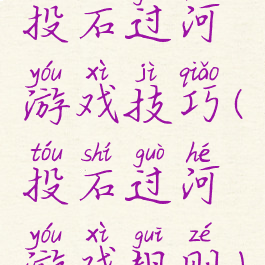 投石过河
yóu xì jì qiǎo
游戏技巧(
tóu shí guò hé
投石过河
yóu xì guī zé
游戏规则)